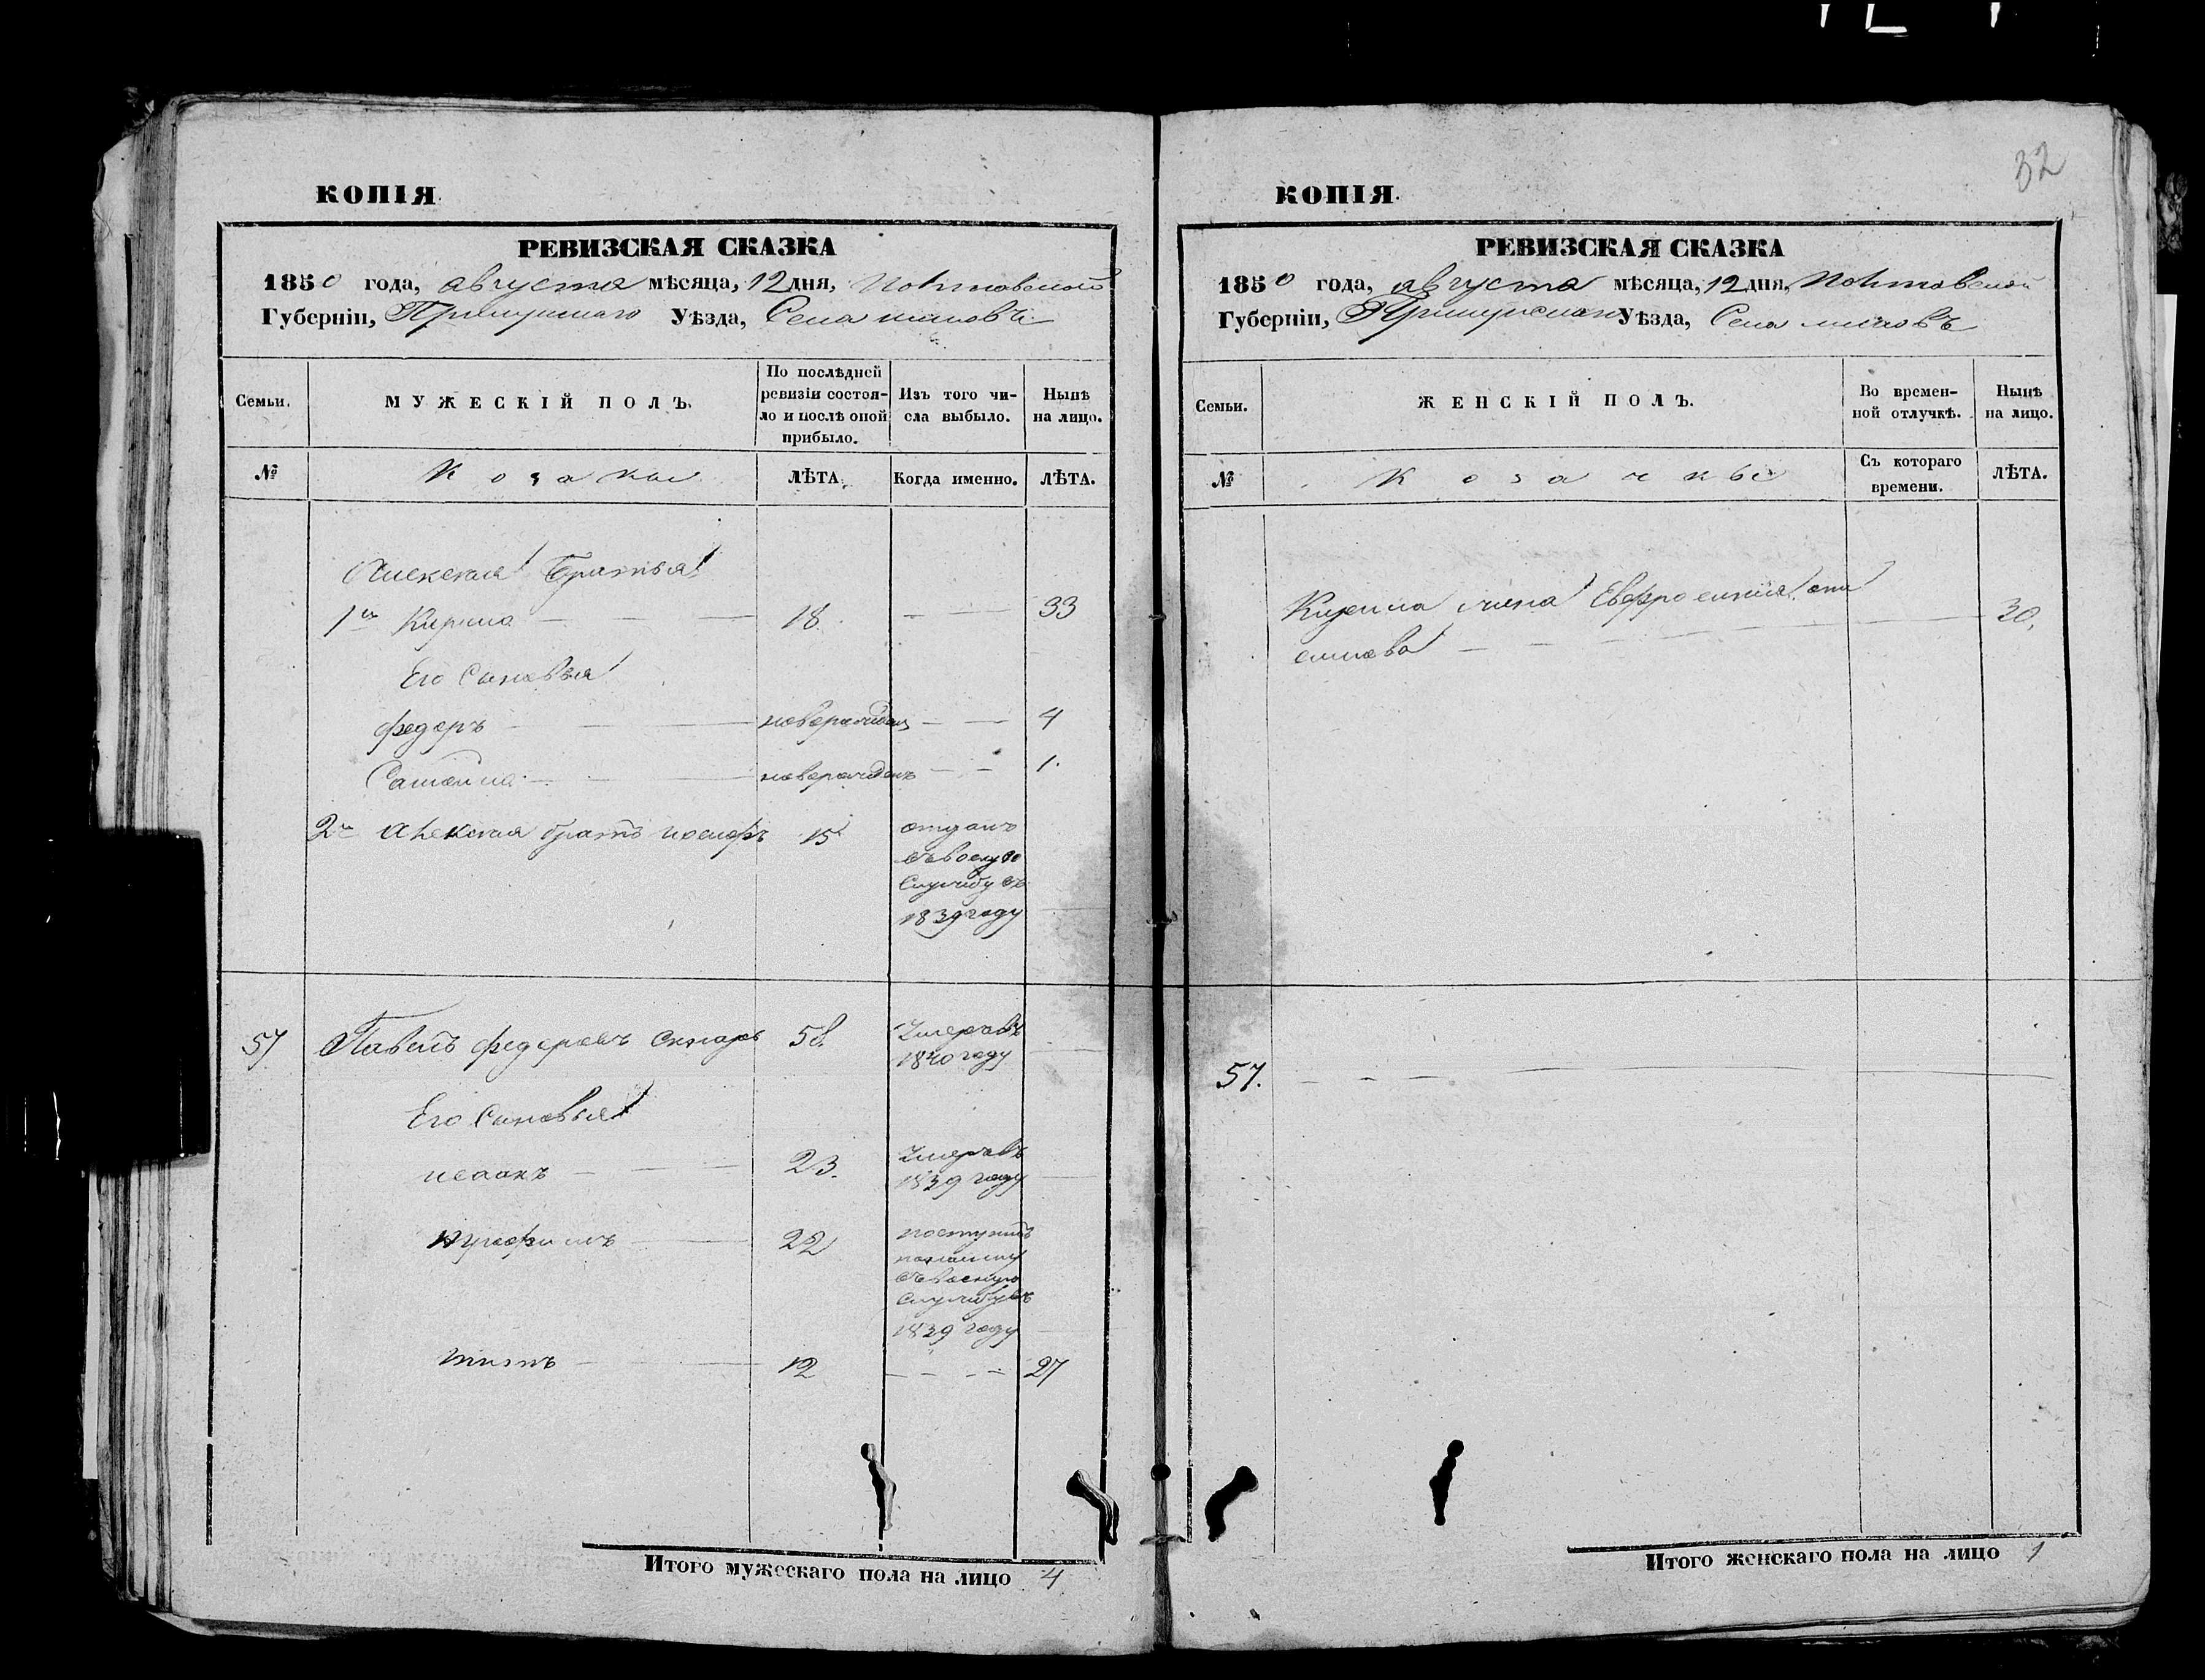 32
КОПІЯ.
РЕВИЗСКАЯ СКАЗКА
1850 года, августа мѣсяца, 12 дня, Полтавской
Губерніи, Прилуцкаго Уѣзда, Села
Семьи.
МУЖЕСКІЙ ПОЛЪ.
По послѣдней
ревизіи состоя-
ло и послѣ оной
прибыло.
Изъ того чи-
сла выбыло.
Нынѣ
на лицо.
№
Козаки
ЛѢТА.
Когда именно.
ЛѢТА.
Алексея братья
1й Кирило 18 33
Его Сыновья
федоръ новорожденъ 4
Самойло новорожденъ 1
2й Алексея братъ иосифъ 15 отданъ
въ военую
Службу въ
1839 году
57 Павелъ федоровъ 58 Умеръ въ
1840 году
Его Сыновья
исаакъ 23 Умеръ въ
1839 году
трофимъ 22 поступилъ
въ военную
службу въ
1839 году
титъ 12 27
Итого мужескаго пола на лицо 4
КОПІЯ.
РЕВИЗСКАЯ СКАЗКА
1850 года, августа мѣсяца, 12 дня, Полтавской
Губерніи, Прилуцкаго Уѣзда, Села
Семьи.
ЖЕНСКІЙ ПОЛЪ.
Во времен-
ной отлучкѣ.
Нынѣ
на лицо.
№
Козачки
Съ котораго
времени.
ЛѢТА.
Кирила жена Евфросинія
30
57.
Итого женскаго пола на лицо 1